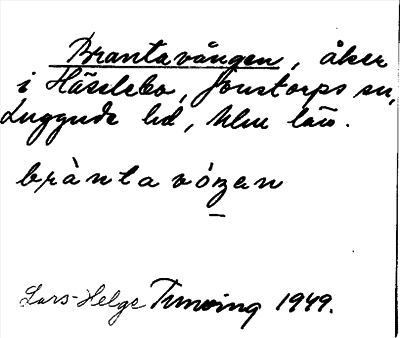 Brantavången, åker
i Hässlebo, Jonstorps sn,
Luggude hd, Mlm län.
bràntavóŋen
Lars-Helge Tunving 1949.